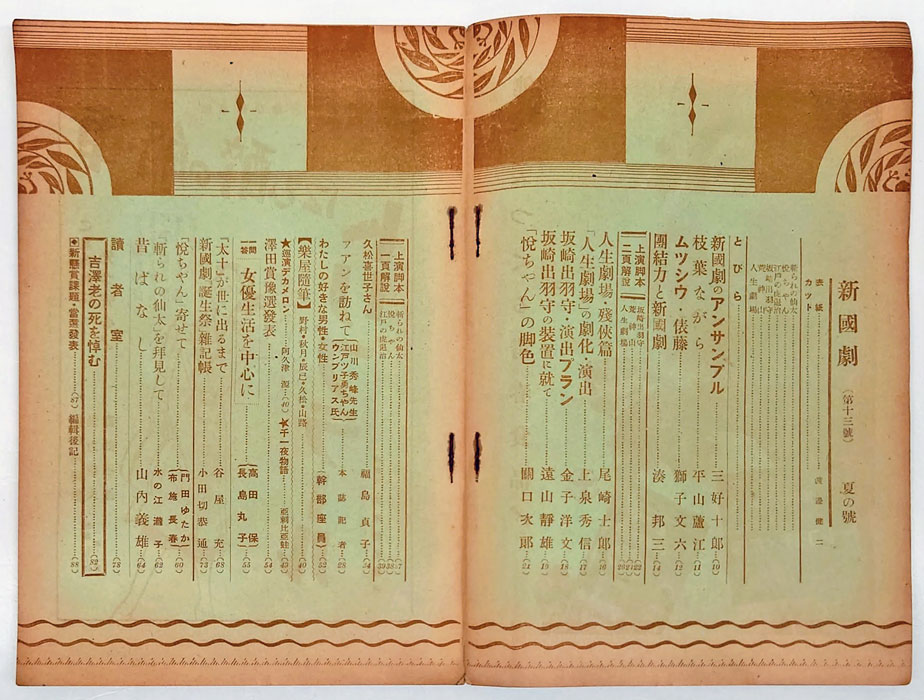 新國劇 (第十三號) 夏の號
表紙
カット
とびら
新國劇のアンサンブル 三好十郎 (10)
枝葉ながら 平山蘆江 (11)
ムツシウ・俵藤 獅子文六 (12)
團結力と新國劇 湊邦三 (14)
上演脚本
二頁解説
坂崎出羽守
荒神山
人生劇場
人生劇場・殘俠篇 尾崎士郎 (16)
「人生劇場」の劇化・演出 上泉秀信 (17)
坂崎出羽守・演出プラン 金子洋文 (18)
坂崎出羽守の装置に就て 遠山靜雄 (19)
「悅ちゃん」の脚色 關口次郎 (21)
上演脚本
一頁解説
斬られの仙太
悅ちゃん
江戸の虎退治
久松喜世子さん 福島貞子 (34)
ファンを訪ねて 山川秀峰先生 江戸ツ子勇ちゃん ウンプリアス氏 本誌記者 (28)
わたしの好きな男性・女性 (幹部座員) (52)
【樂屋隨筆】 野村秋月・辰巳・久松・山路 (40)
★巡演デカメロン 阿久津源 (40) ★千一夜物語 亞剌比亞蛙 (45)
澤田賞推選發表 (54)
一問一答 女優生活を中心に 高田保 長島丸子 (55)
「太十」が世に出るまで 谷屋充 (68)
新國劇誕生祭雜記帳 小田切恭通 (73)
「悅ちゃん」寄せて 門田ゆたか 布施長春 (60)
「斬られの仙太」を拜見して 水の江瀧子 (62)
昔ばなし 山内義雄 (64)
讀者室 (78)
吉澤老の死を悼む (82)
◆新懸賞課題・當選發表 (87) 編輯後記 (88)